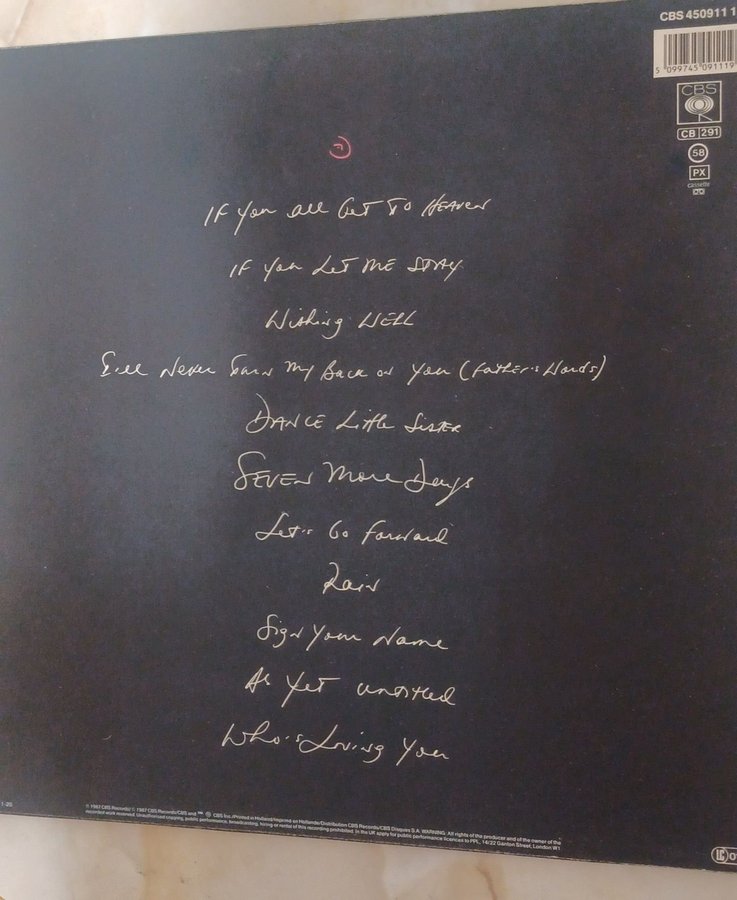 CBS 450911 1
5 099745 091119
CBS
CB 291
58
PX
cassette
If You All Get To Heaven
If You Let Me Stay
Wishing Well
I'll Never Turn My Back on You (Father's Words)
Dance Little Sister
Seven More Days
Let's Go Forward
Rain
Sign Your Name
As Yet Untitled
Who's Loving You
1-20
℗ 1987 CBS Records/© 1987 CBS Records/CBS and ™ CBS Inc./Printed in Holland/Imprimé en Hollande/Distribution CBS Records/CBS Disques S.A. WARNING: All rights of the producer and of the owner of the
recorded work reserved. Unauthorised copying, public performance, broadcasting, hiring or rental of this recording prohibited. In the UK apply for public performance licences to PPL, 14/22 Ganton Street, London W1